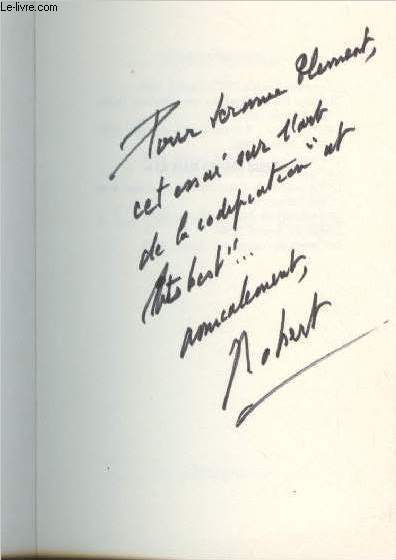 © Le-livre.com
Pour Jérome Clément,
cet essai sur l'art
de la codification "at
its best"...
amicalement,
Robert